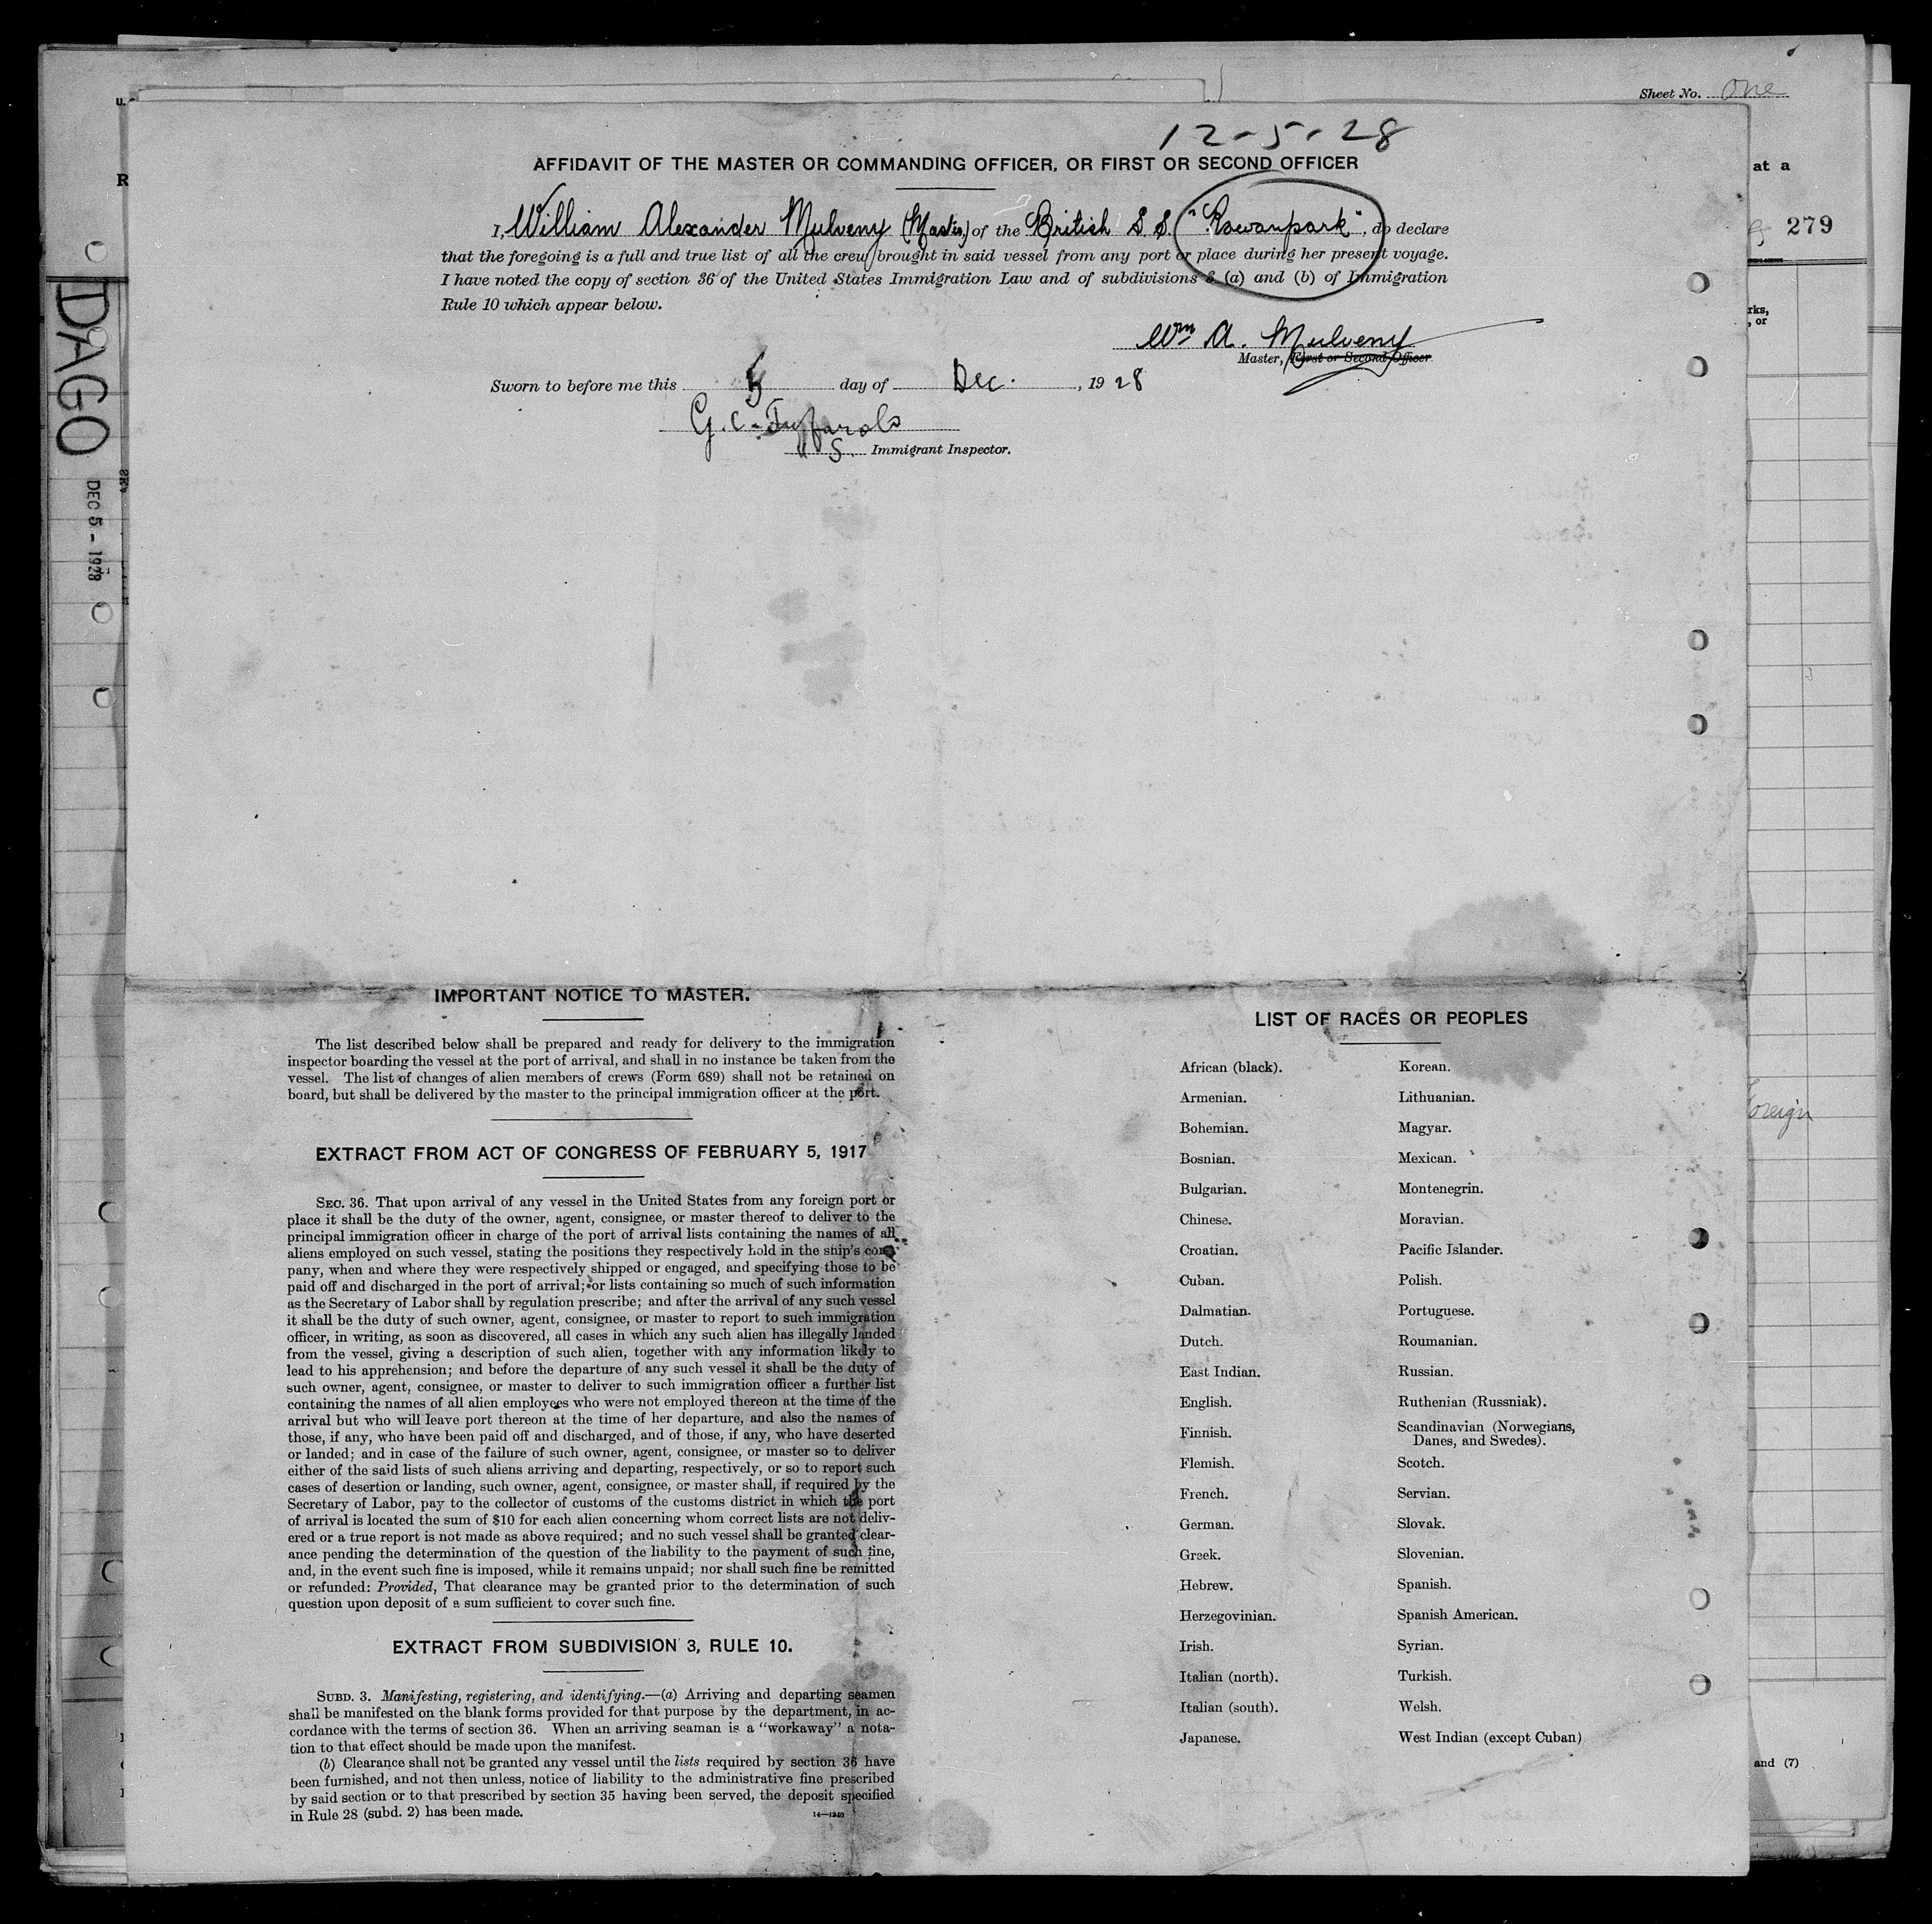 Sheet No. One
12-5-28
AFFIDAVIT OF THE MASTER OR COMMANDING OFFICER, OR FIRST OR SECOND OFFICER
I, William Alexander Mulveny (Master) of the British S.S. "Rowanpark", do declare
that the foregoing is a full and true list of all the crew brought in said vessel from any port or place during her present voyage.
I have noted the copy of section 36 of the United States Immigration Law and of subdivisions 3 (a) and (b) of Immigration
Rule 10 which appear below.
Wm A. Mulveny
Master, First or Second Officer
Sworn to before me this 5 day of Dec., 1928
G. C.
U S. Immigrant Inspector.
at a
279
rks,
, or
DAGO
DEC 5 - 1928
IMPORTANT NOTICE TO MASTER.
The list described below shall be prepared and ready for delivery to the immigration
inspector boarding the vessel at the port of arrival, and shall in no instance be taken from the
vessel. The list of changes of alien members of crews (Form 689) shall not be retained on
board, but shall be delivered by the master to the principal immigration officer at the port.
EXTRACT FROM ACT OF CONGRESS OF FEBRUARY 5, 1917
SEC. 36. That upon arrival of any vessel in the United States from any foreign port or
place it shall be the duty of the owner, agent, consignee, or master thereof to deliver to the
principal immigration officer in charge of the port of arrival lists containing the names of all
aliens employed on such vessel, stating the positions they respectively hold in the ship's com-
pany, when and where they were respectively shipped or engaged, and specifying those to be
paid off and discharged in the port of arrival; or lists containing so much of such information
as the Secretary of Labor shall by regulation prescribe; and after the arrival of any such vessel
it shall be the duty of such owner, agent, consignee, or master to report to such immigration
officer, in writing, as soon as discovered, all cases in which any such alien has illegally landed
from the vessel, giving a description of such alien, together with any information likely to
lead to his apprehension; and before the departure of any such vessel it shall be the duty of
such owner, agent, consignee, or master to deliver to such immigration officer a further list
containing the names of all alien employees who were not employed thereon at the time of the
arrival but who will leave port thereon at the time of her departure, and also the names of
those, if any, who have been paid off and discharged, and of those, if any, who have deserted
or landed; and in case of the failure of such owner, agent, consignee, or master so to deliver
either of the said lists of such aliens arriving and departing, respectively, or so to report such
cases of desertion or landing, such owner, agent, consignee, or master shall, if required by the
Secretary of Labor, pay to the collector of customs of the customs district in which the port
of arrival is located the sum of $10 for each alien concerning whom correct lists are not deliv-
ered or a true report is not made as above required; and no such vessel shall be granted clear-
ance pending the determination of the question of the liability to the payment of such fine,
and, in the event such fine is imposed, while it remains unpaid; nor shall such fine be remitted
or refunded: Provided, That clearance may be granted prior to the determination of such
question upon deposit of a sum sufficient to cover such fine.
EXTRACT FROM SUBDIVISION 3, RULE 10.
SUBD. 3. Manifesting, registering, and identifying.—(a) Arriving and departing seamen
shall be manifested on the blank forms provided for that purpose by the department, in ac-
cordance with the terms of section 36. When an arriving seaman is a "workaway" a nota-
tion to that effect should be made upon the manifest.
(b) Clearance shall not be granted any vessel until the lists required by section 36 have
been furnished, and not then unless, notice of liability to the administrative fine prescribed
by said section or to that prescribed by section 35 having been served, the deposit specified
in Rule 28 (subd. 2) has been made.
14—1240
LIST OF RACES OR PEOPLES
African (black).
Armenian.
Bohemian.
Bosnian.
Bulgarian.
Chinese.
Croatian.
Cuban.
Dalmatian.
Dutch.
East Indian.
English.
Finnish.
Flemish.
French.
German.
Greek.
Hebrew.
Herzegovinian.
Irish.
Italian (north).
Italian (south).
Japanese.
Korean.
Lithuanian.
Magyar.
Mexican.
Montenegrin.
Moravian.
Pacific Islander.
Polish.
Portuguese.
Roumanian.
Russian.
Ruthenian (Russniak).
Scandinavian (Norwegians,
Danes, and Swedes).
Scotch.
Servian.
Slovak.
Slovenian.
Spanish.
Spanish American.
Syrian.
Turkish.
Welsh.
West Indian (except Cuban)
Foreign
and (7)